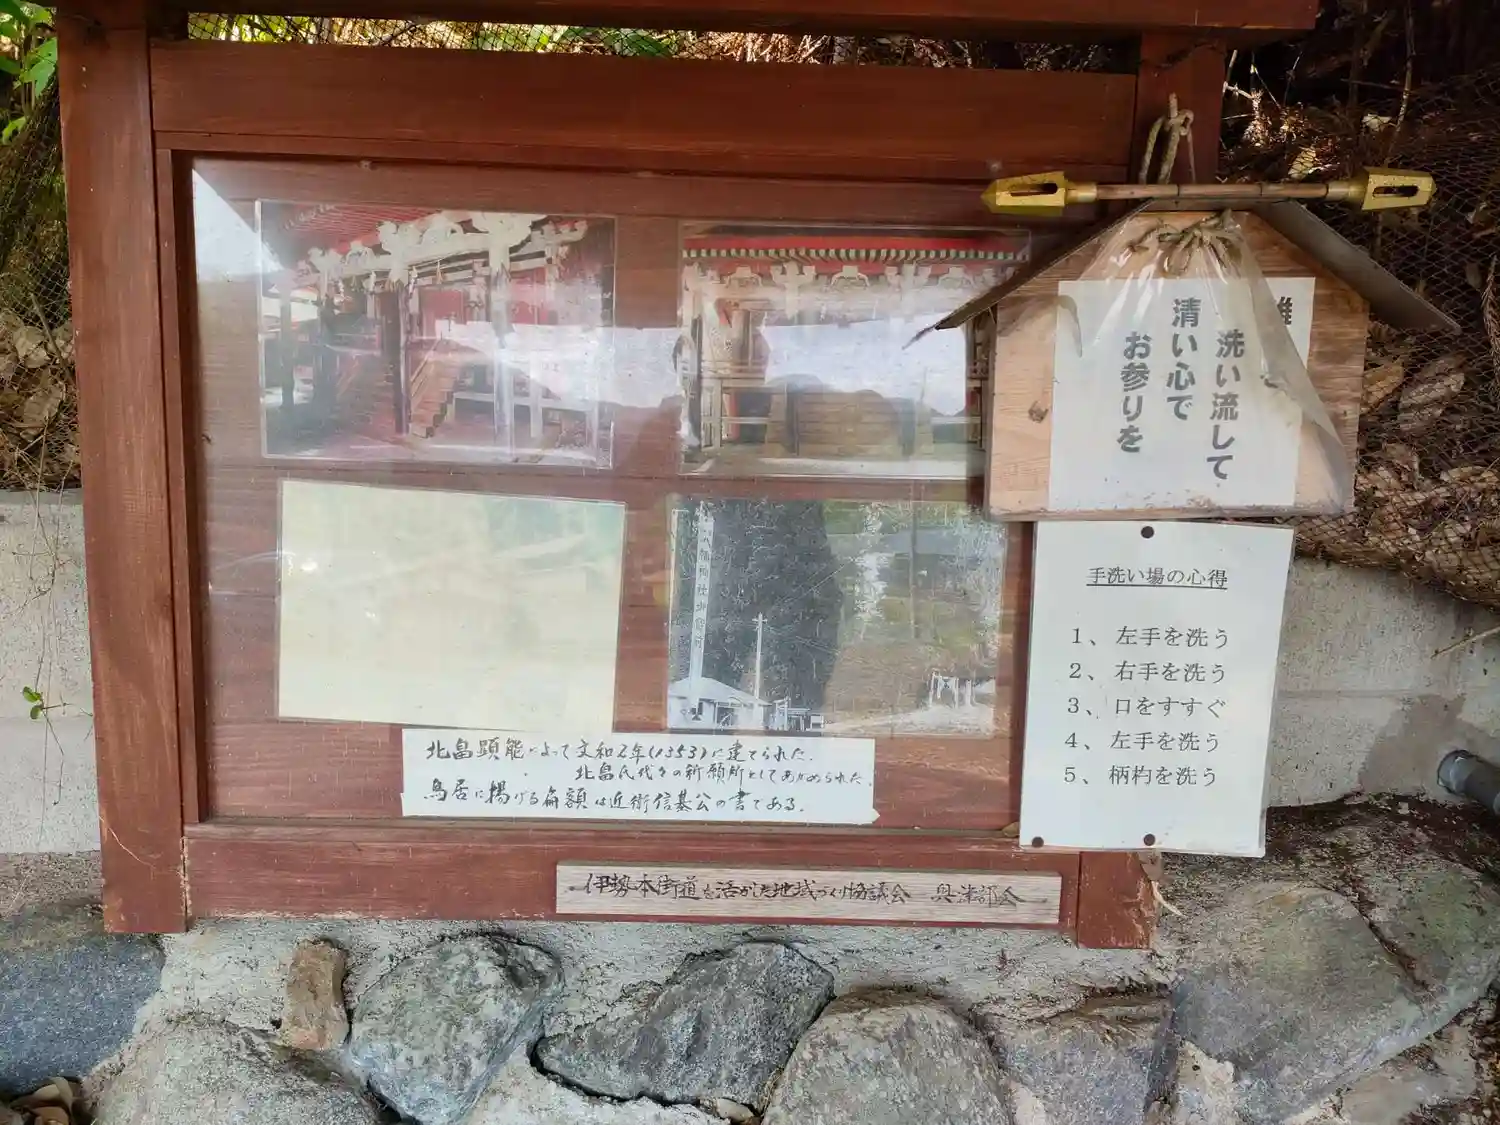 洗い流して
清い心で
お参りを
手洗い場の心得
1、左手を洗う
2、右手を洗う
3、口をすすぐ
4、左手を洗う
5、柄杓を洗う
北畠顕能によって文和2年(1353)に建てられた.
北畠氏代々の祈願所としてあがめられた.
鳥居に掲げる扁額は近衛信基公の書である.
伊勢本街道を活かした地域づくり協議会 興津部会